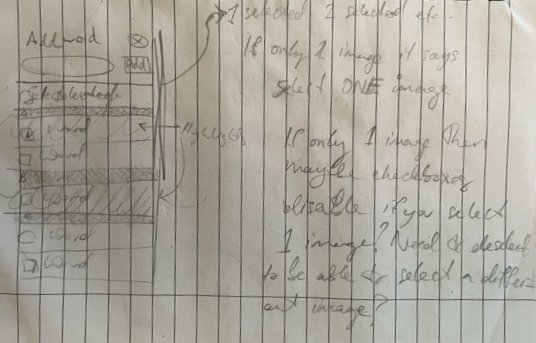 Add word
Add
Word
Word
Word
Word
Word
1 selected 2 selected etc.
If only 1 image it says
select ONE image
If only 1 image then
maybe checkboxes
disable if you select
1 image? Need to deselect
to be able to select a differ
ent image?